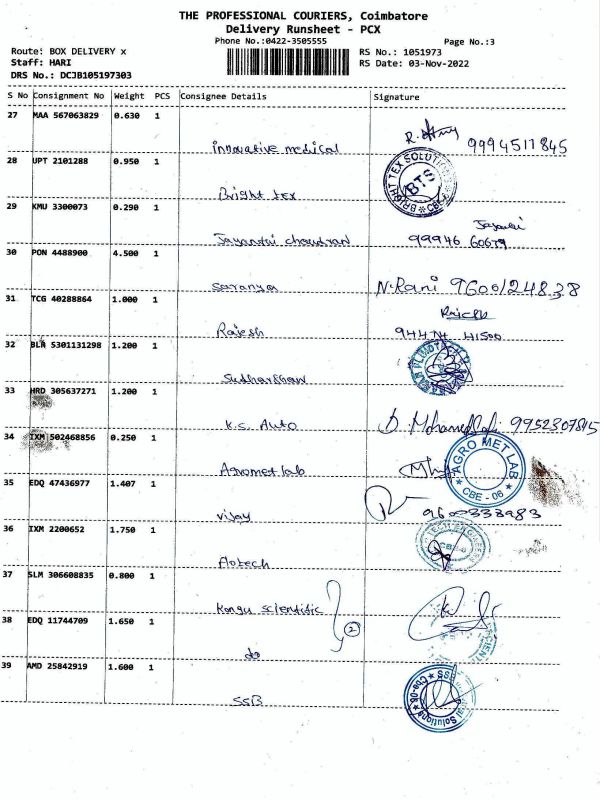 THE PROFESSIONAL COURIERS, Coimbatore
Delivery Runsheet - PCX
Phone No.:0422-3505555
Page No.:3
Route: BOX DELIVERY x
RS No.: 1051973
Staff: HARI
RS Date: 03-Nov-2022
DRS No.: DCJB105197303
S No Consignment No Weight PCS Consignee Details Signature
27 MAA 567063829 0.630 1
innovative medical 9994511845
28 UPT 2101288 0.950 1
Bright tex BRIGHT TEX SOLUTIONS BTS CBE
29 KMU 3300073 0.290 1
99946 60679
30 PON 4488900 4.500 1
Saranya N.Rani 9600124838
31 TCG 40288864 1.000 1
Rajesh
32 BLR 5301131298 1.200 1
33 HRD 305637271 1.200 1
K.S. Auto D. Mohamed 9952307815
34 IXM 502468856 0.250 1
Agromet lab AGRO MET LAB CBE - 06
35 EDQ 47436977 1.407 1
vijay 9600333983
36 IXM 2200652 1.750 1
Flotech
37 SLM 306608835 0.800 1
Kongu scientific
2
38 EDQ 11744709 1.650 1
do
39 AMD 25842919 1.600 1
SSB Solutions Cbe-06